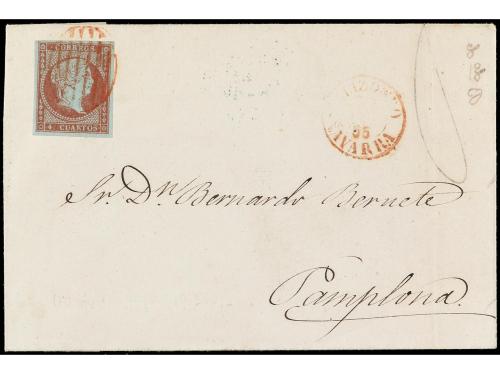 CORREOS
4 CUARTOS
55
NAVARRA
Sr. Dn. Bernardo Beruete
Pamplona.